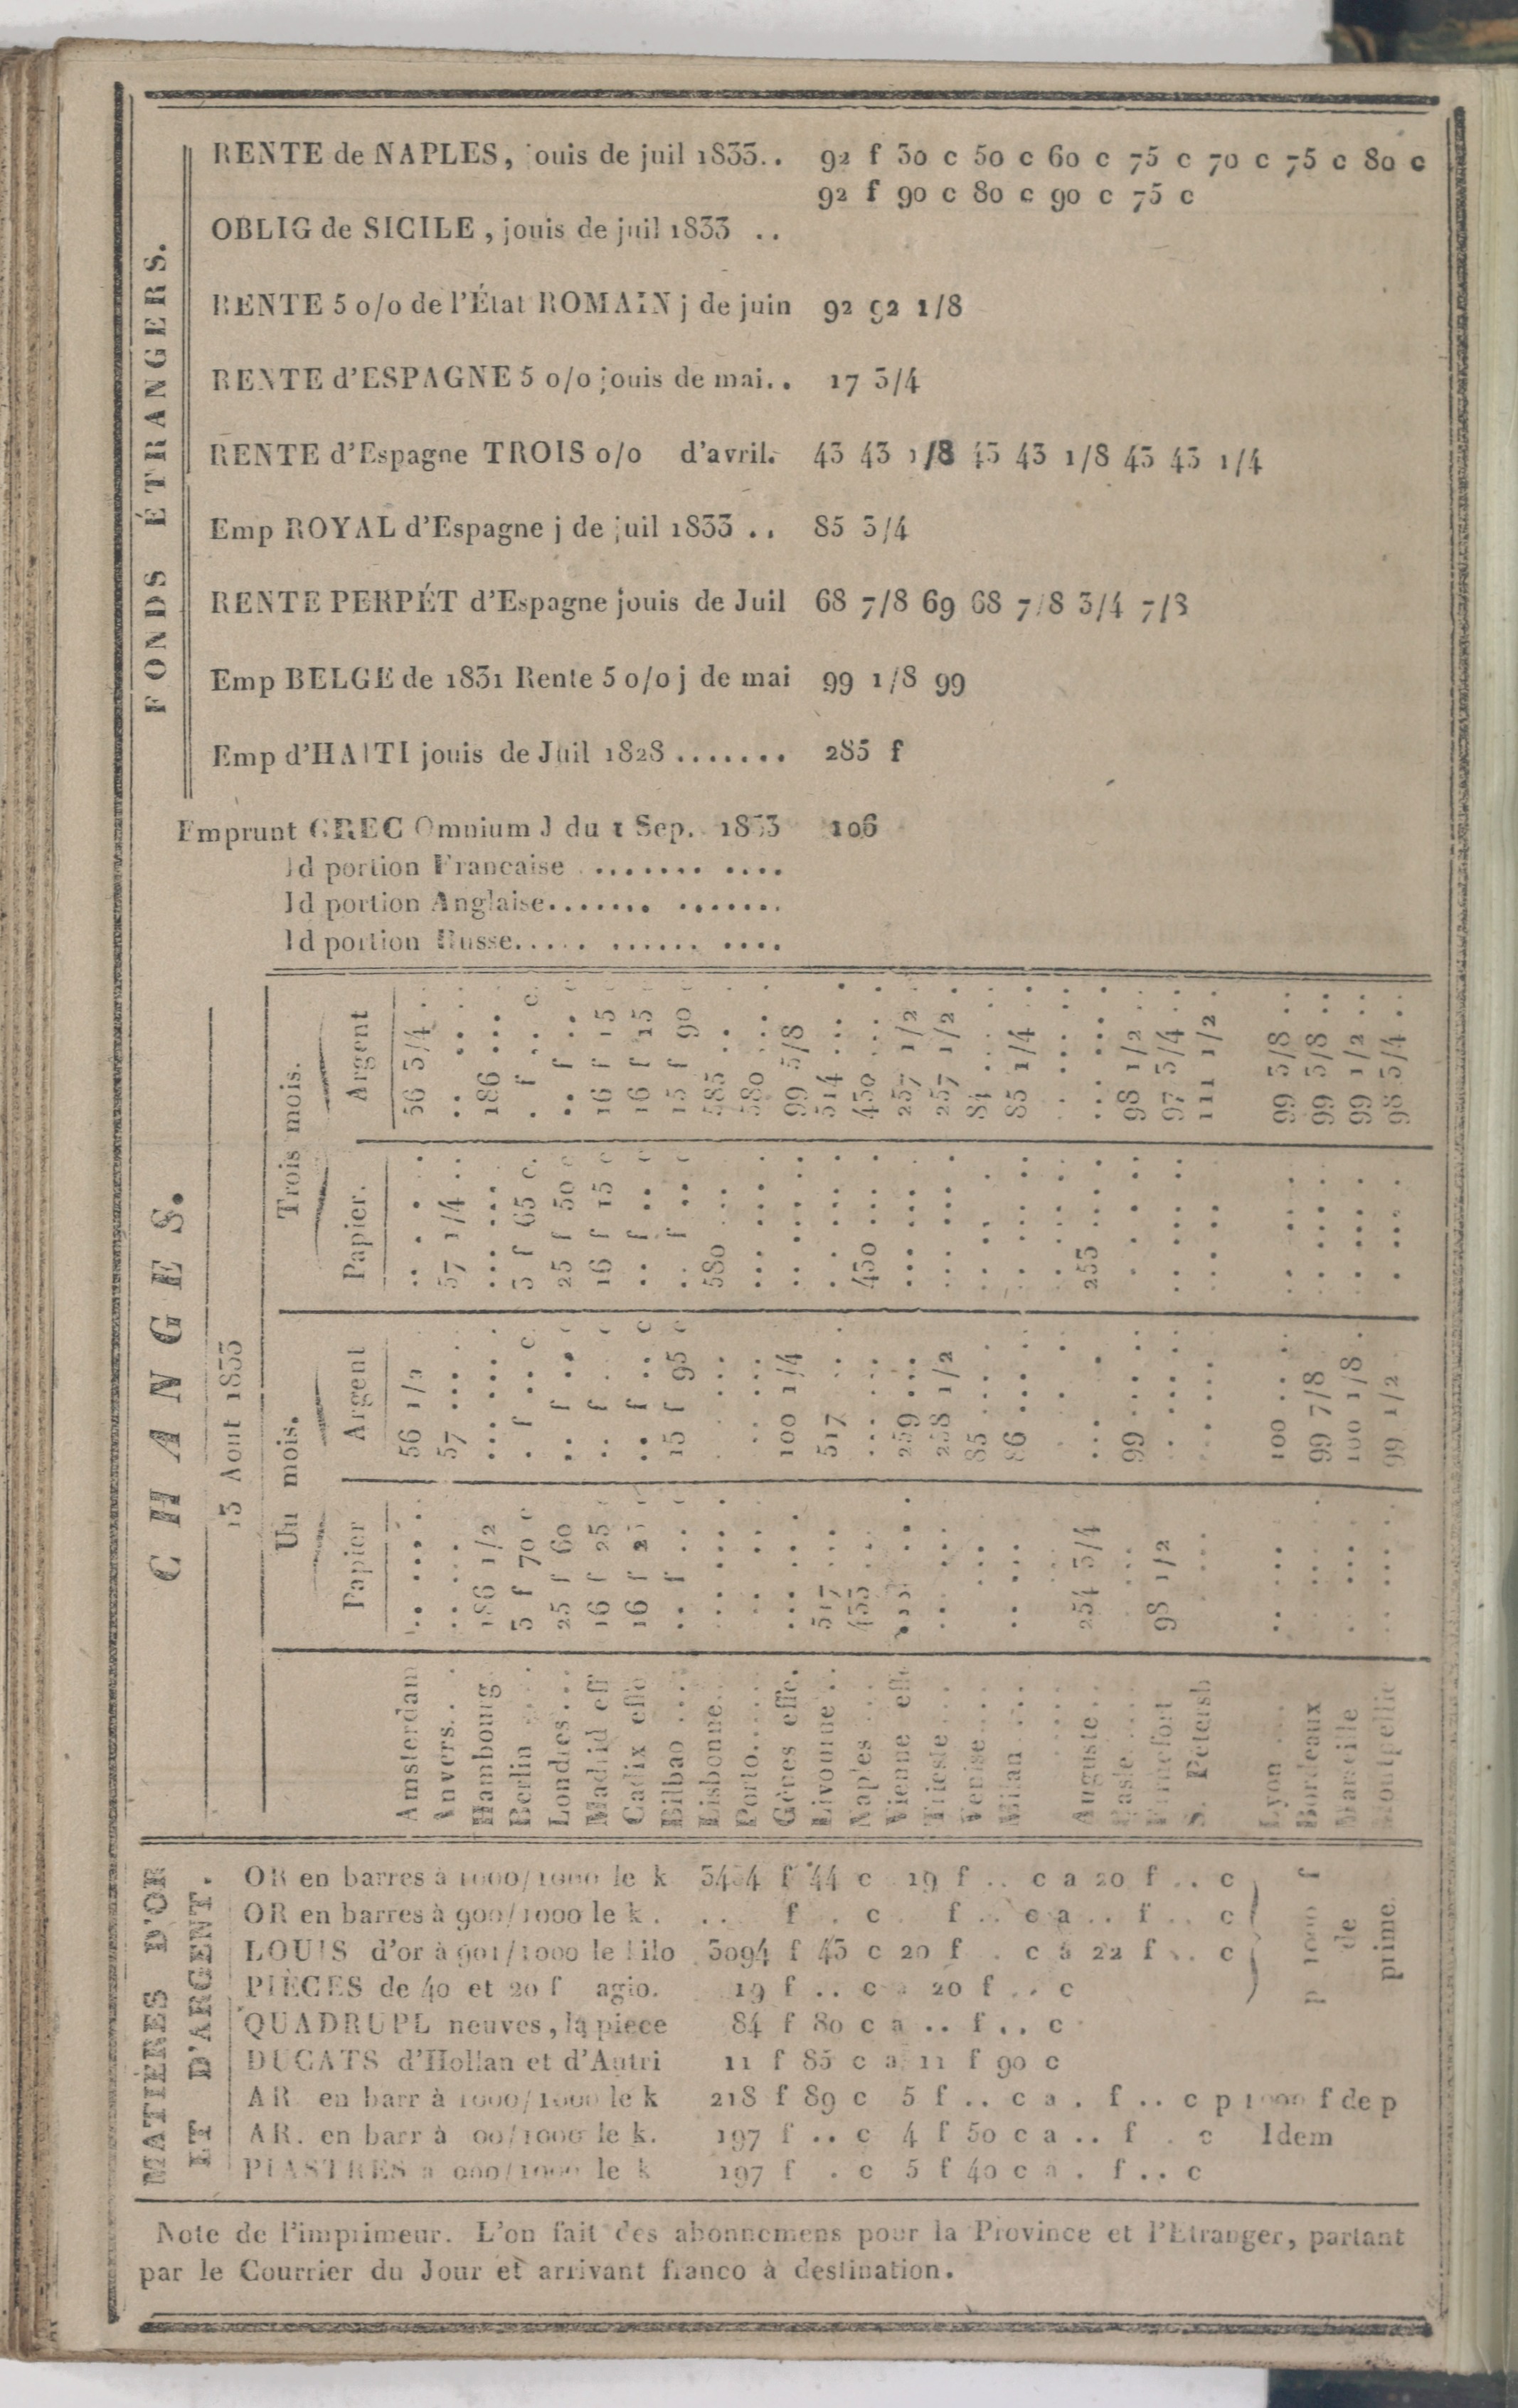 FONDS ÉTRANGERS.
RENTE de NAPLES, jouis de juil 1833.. 92 f 30 c 50 c 60 c 75 c 70 c 75 c 80 c
92 f 90 c 80 c 90 c 75 c
OBLIG de SICILE, jouis de juil 1833 ..
RENTE 5 o/o de l'État ROMAIN j de juin 92 92 1/8
RENTE d'ESPAGNE 5 o/o jouis de mai.. 17 3/4
RENTE d'Espagne TROIS o/o d'avril. 43 43 1/8 43 43 1/8 43 43 1/4
Emp ROYAL d'Espagne j de juil 1833 .. 85 3/4
RENTE PERPÉT d'Espagne jouis de Juil 68 7/8 69 68 7/8 3/4 7/8
Emp BELGE de 1831 Rente 5 o/o j de mai 99 1/8 99
Emp d'HAITI jouis de Juil 1828 ....... 285 f
Emprunt GREC Omnium J du 1 Sep. 1833 106
Id portion Francaise ........ ....
Id portion Anglaise....... .......
Id portion Russe..... ...... ....
CHANGES.
13 Aout 1833
Un mois. Trois mois.
Papier Argent Papier. Argent
Amsterdam .. .... . 56 1/2 .. .. . . 56 3/4 ..
Anvers... .. .... 57 .... 57 1/4 .. .. .. ..
Hambourg 186 1/2 ... .... ... ... 186 ...
Berlin .... 3 f 70 c . f .. c 3 f 65 c. . f .. c.
Londres... 25 f 60 .. f .. c 25 f 50 c .. f .. c
Madrid eff 16 f 25 c .. f .. c 16 f 15 c 16 f 15 c
Cadix effe 16 f c .. f .. c .. f .. c 16 f 15 c
Bilbao .... .. f .. c 15 f 95 c .. f .. c 15 f 90 c
Lisbonne.. ... ... 580 ... 585 ..
Porto..... .. .. .. ... ... ... 580 ...
Gènes effe. ... .. . 100 1/4 .. ... . 99 5/8
Livourne .. 517 ... 517 .. . .. ... 514 ...
Naples ... 453 .. ... ... 450 ... 450 ...
Vienne effe .. . 259 ... ... ... 257 1/2
Trieste ... ... ... 258 1/2 .. ... 257 1/2 .
Venise.... ... 85 .... .. .. 84 ....
Milan .... .. ... 86 ... .. ... 85 1/4 ..
Auguste.. 254 3/4 ... . 253 ... . ... ...
Basle.... ... 99 .... . .. .. 98 1/2 ..
98 1/2 . .... .. ... .. 97 3/4 ..
S. Petersb ... .. ... .. ... 111 1/2 .
Lyon ... .. ... 100 ... .. ... 99 5/8 ..
Bordeaux .. ... 99 7/8 . ... . 99 5/8 ..
Marseille . ... 100 1/8 . . ... . 99 1/2 ..
.. ... 99 1/2 . . ... . 98 3/4 ..
MATIERES D'OR
ET D'ARGENT.
OR en barres à 1000/1000 le k 3434 f 44 c 19 f .. c a 20 f .. c
OR en barres à 900/1000 le k . .. f . c . f .. c a .. f .. c
LOUIS d'or à 901/1000 le kilo 3094 f 43 c 20 f . c à 22 f .. c
p 1000 f
de
prime.
PIÈCES de 40 et 20 f agio. 19 f .. c a 20 f .. c
QUADRUPL neuves, la piece 84 f 80 c a .. f .. c
DUCATS d'Hollan et d'Autri 11 f 85 c a 11 f 90 c
AR en barr à 1000/1000 le k 218 f 89 c 5 f .. c a . f .. c p 1000 f de p
AR. en barr à 00/1000 le k. 197 f .. c 4 f 50 c a .. f . c Idem
PIASTRES a le k 197 f . c 5 f 40 c a . f .. c
Note de l'imprimeur. L'on fait des abonnemens pour la Province et l'Etranger, partant
par le Courrier du Jour et arrivant franco à destination.